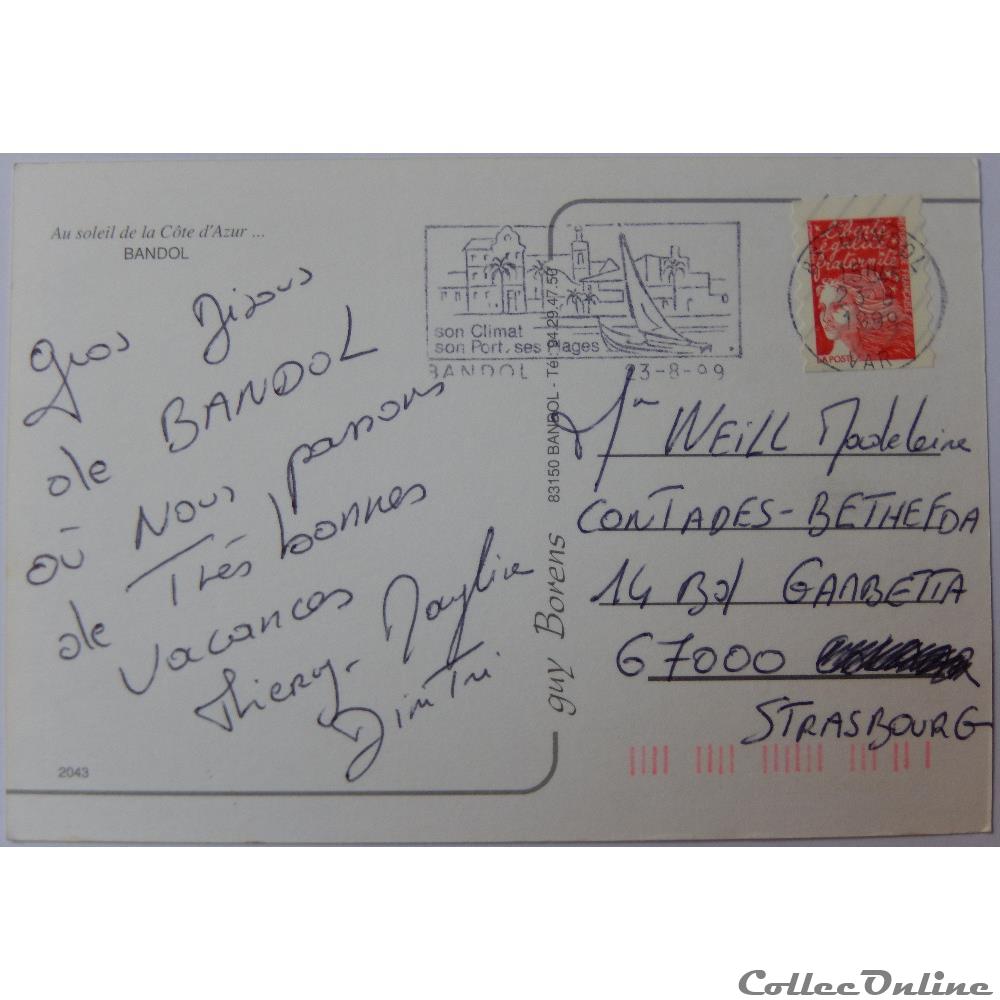 Au soleil de la Côte d'Azur ...
BANDOL
Gros Bisous
de BANDOL
où Nous passons
de Très bonnes
vacances
Thierry. Mayline
Dimitri
2043
son Climat
son Port, ses Plages
BANDOL 23-8-99
guy Borens 83150 BANDOL - Tél. 94.29.47.50
Liberté
égalité
fraternité
LA POSTE
BANDOL
23-8
1999
VAR
Mme WEILL Madeleine
CONTADES-BETHEFDA
14 Bd GAMBETTA
67000
STRASBOURG
CollecOnline